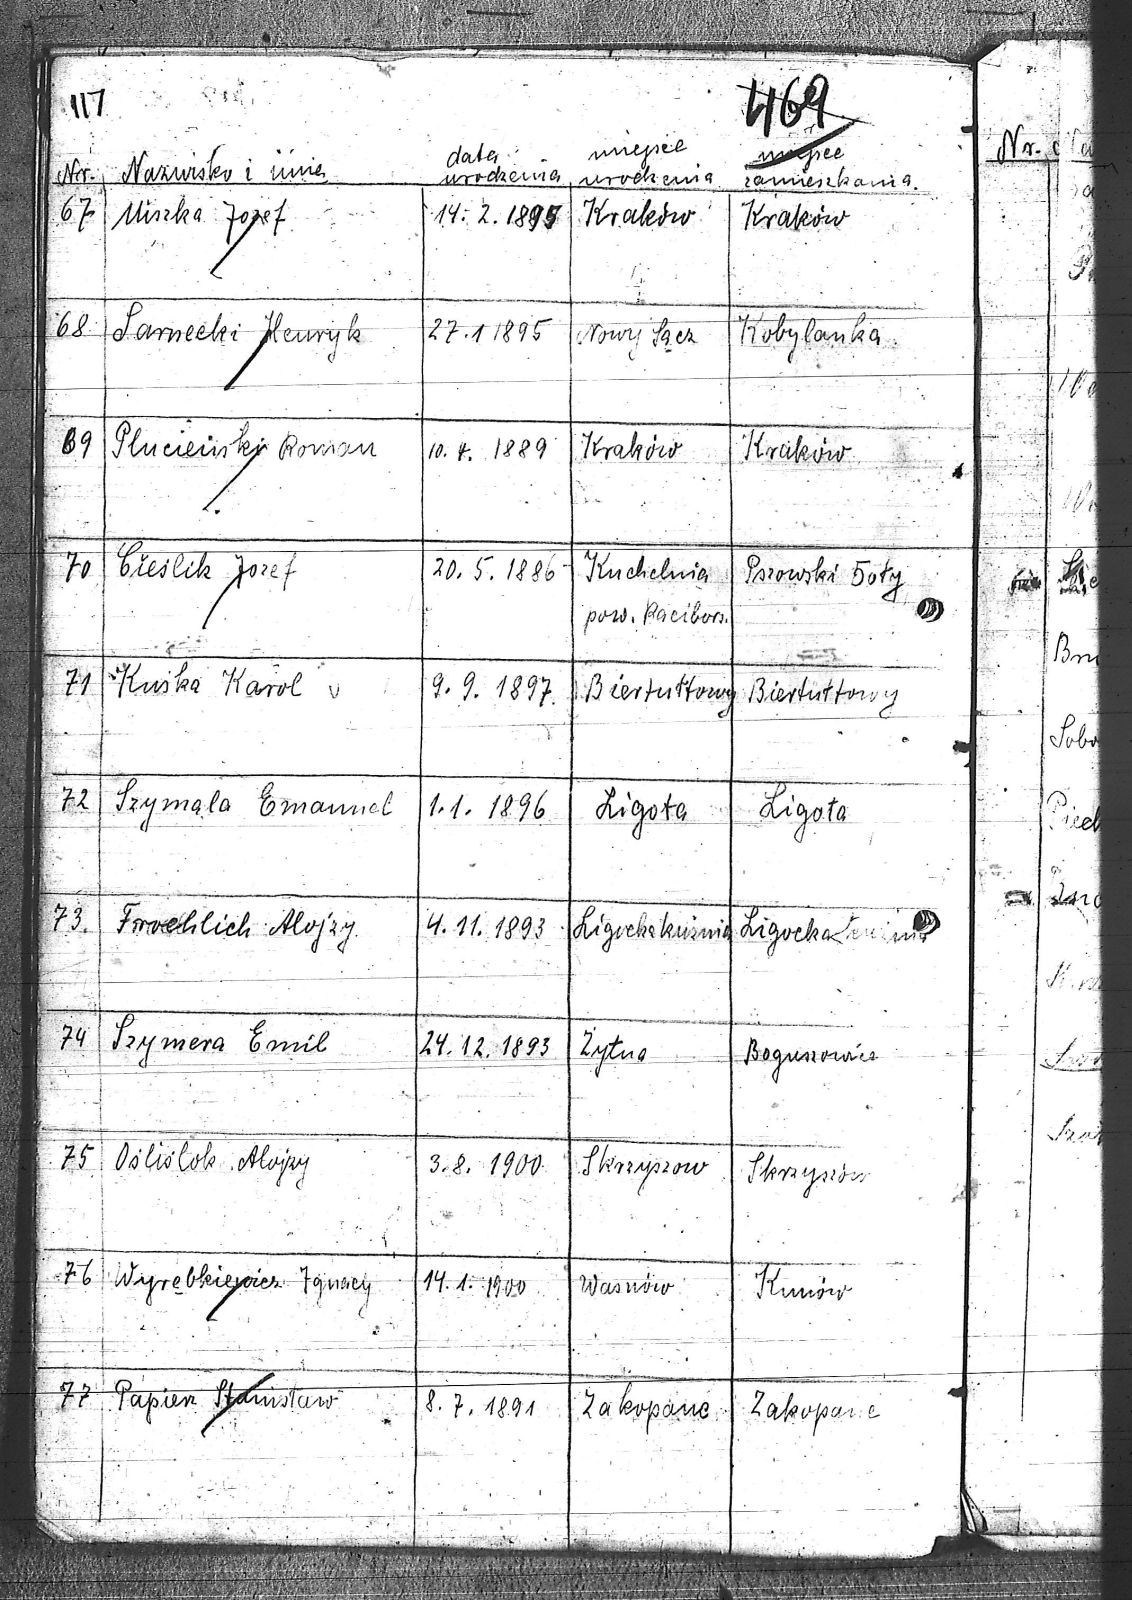 117
469
Nr. Nazwisko i imię data urodzenia miejsce urodzenia miejsce zamieszkania.
67 Miszka Jozef 14. 2. 1895 Kraków Kraków
68 Sarnecki Henryk 27.1 1895 Nowy Sącz Kobylanka
69 Plucieński Roman 10. 4. 1889 Kraków Kraków
70 Cieślik Jozef 20. 5. 1886 Kuchelnia Pszowski Doły
pow. Racibors.
71 Kuśka Karol v 9. 9. 1897. Biertułtowy Biertułtowy
72 Szymala Emanuel 1.1. 1896 Ligota Ligota
73. Froehlich Alojzy 4. 11. 1893 Ligockakuźnia Ligocka
74 Szymera Emil 24. 12. 1893 Żytna Boguszowice
75 Ośliślok Alojzy 3. 8. 1900 Skrzyszow Skrzyszów
76 Wyrębkiewicz Ignacy 14. 1. 1900 Wasniów Kunów
77 Papierz Stanisław 8. 7. 1891 Zakopane Zakopane
Nr.
Sobo